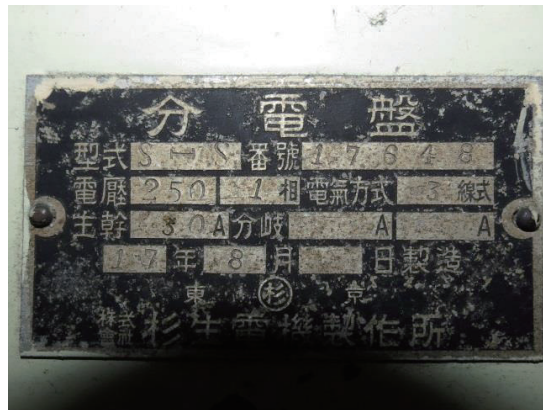 分電盤
型式 S-S 番號 17648
電壓 250 1相 電氣方式 3線式
主幹 30A 分岐 A A
17年8月 日製造
東 杉 京
株式會社 杉生電機製作所